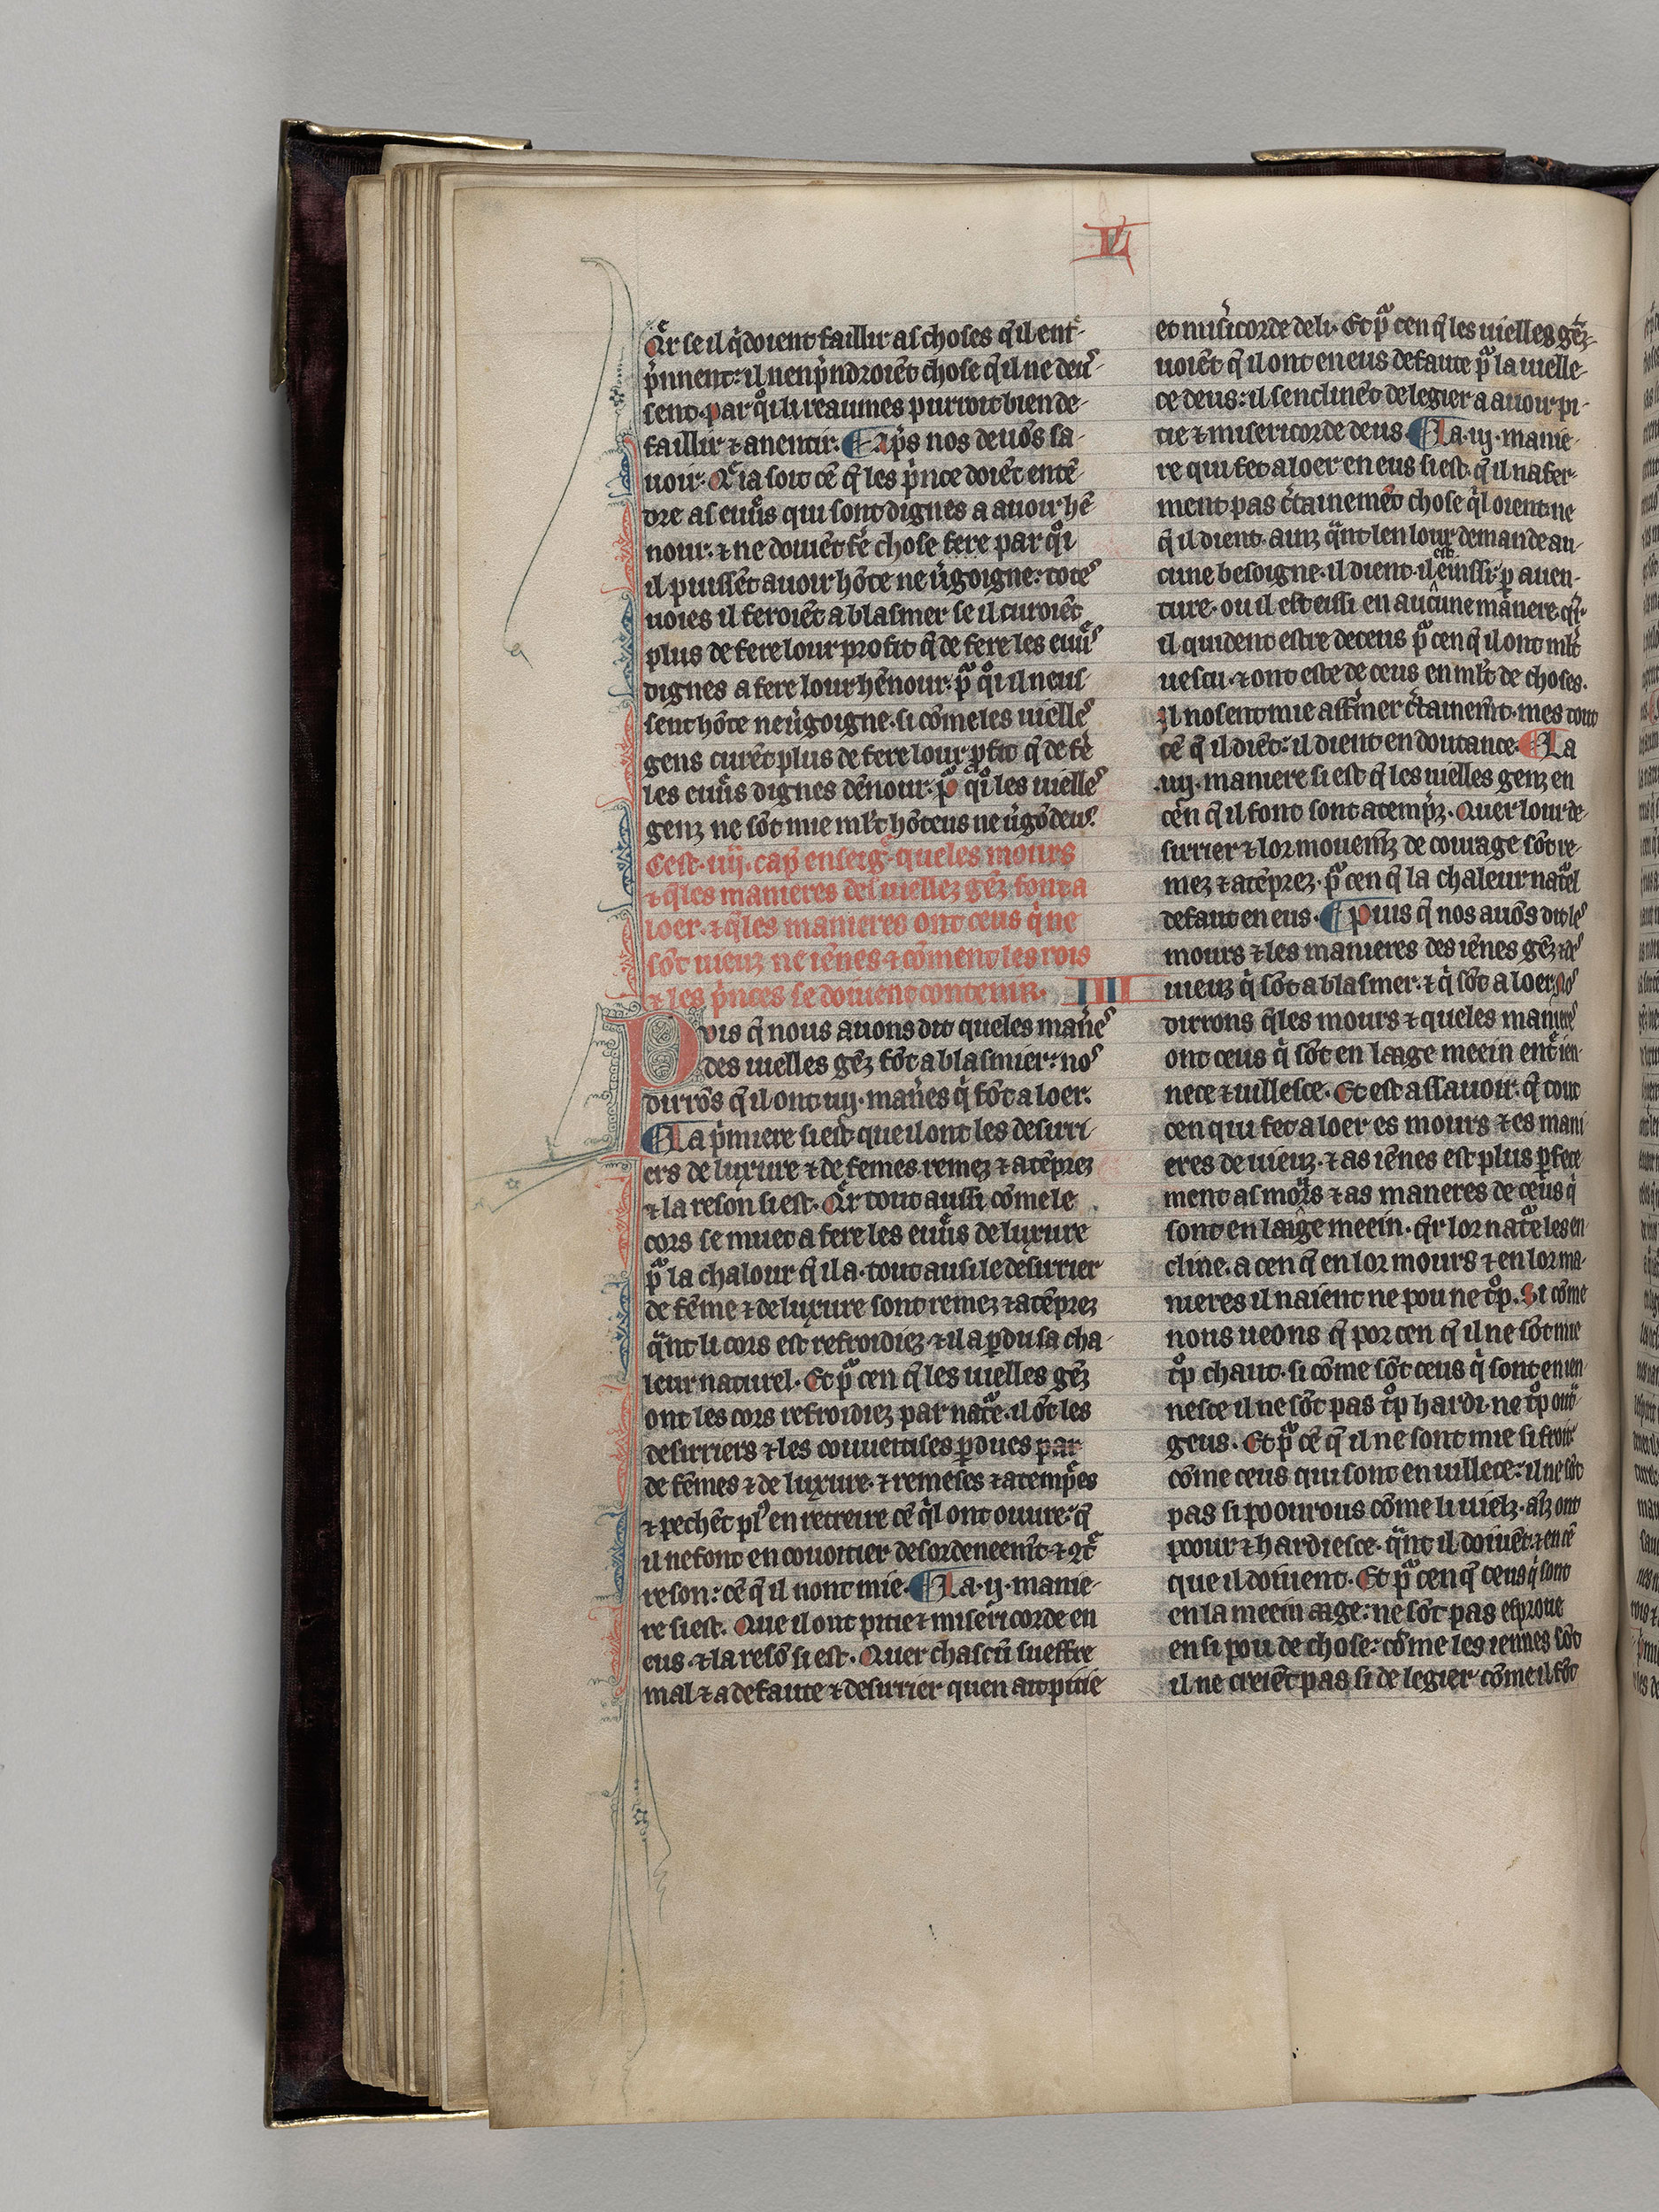 L
Qr se il qͥdoient faillir as choses q̃ il ent̾-
pͥnnent: il nen pͥndroiẽt chose q̃ il ne deuͥ-
sent. par qͦi li reaumes purroit bien de-
faillir ⁊ anentir. ¶ Apͥs nos deuõs sa-
uoir. Q̃ ia soit cẽ q̃ les pͥnce doiẽt entẽ-
dre as euũs qui sont dignes a auoir hẽ
nour. ⁊ ne doiuẽt fẽ chose fere par qͦi
il puissẽt auoir hõte ne ũgoigne: toteˢ
uoies il feroiẽt a blasmer se il curoiẽt
plus de fere lour profit q̃ de fere les euũˢ
dignes a fere lour hẽnour. pᷓ qͦi il neus
sent hõte ne ũgoigne. si cõme les uielleˢ
gens curẽt plus de fere lour ꝓfit q̃ de fẽ
les euũs dignes dẽnour. pᷓ qͦi les uielleˢ
genz ne sõt mie ml't hõteus ne ũgõdeus.
Cest. iiij. capͥ enseigͥ. queles mours
⁊ q̃les manieres des uiellez gẽz font a
loer. ⁊ q̃les manieres ont ceus qͥ ne
sõt uieuz ne iẽnes ⁊ cõment les rois
⁊ les pͥnces se doiuent contenir. IIII
Puis q̃ nous auons dit queles mañeˢ
des uielles gẽz sõt a blasmier: noˢ
dirrõs q̃ il ont iiij. mañes qͥ sõt a loer.
¶ La pͥmiere si est que il ont les desirri
ers de luxure ⁊ de femes remez ⁊ atẽprez
⁊ la reson si est. Qr tout aussi cõme le
cors se muet a fere les euũs de luxure
pᷓ la chalour q̃ il a. tout ausi le desirrier
de fẽme ⁊ de luxure sont remez ⁊ atẽprez
qᷓnt li cors est refroidiez ⁊ il a ꝑdu sa cha-
leur naturel. Et pᷓ cen q̃ les uielles gẽz
ont les cors refroidiez par natᷓe. il õt les
desirriers ⁊ les couuentises ꝑdues par
de fẽmes ⁊ de luxure. ⁊ remeses ⁊ atempͥes
⁊ pechẽt plˀ en retreire cẽ qͥl ont ouure. q̃
il ne font en couoitier desordeneemt̃ ⁊ ꝯt̃
reson: cẽ q̃ il nont mie. ¶ La. ij. manie-
re si est. Que il ont pitie ⁊ misericorde en
eus. ⁊ la resõ si est. Quer chascũ sueffre
mal ⁊ a defaute ⁊ desirrier quen ait pitie
et misͥicorde de li. Et pᷓ cen q̃ les uielles gẽz-
uoiẽt q̃ il ont en eus defaute pᷓ la uielle-
ce deus: il senclinẽt de legier a auoir pi-
tie ⁊ misericorde deus. ¶ La. iij. manie-
re qui fet a loer en eus si est. q̃ il nafer-
ment pas c̾tainemẽt chose qͥl oient ne
q̃ il dient. ainz qᷓnt len lour demande au-
cune besoigne. il dient. il est einssi. ꝑ auen-
ture. ou il est eissi en aucune manere. qͬ
il quident estre deceus pᷓ cen q̃ il ont ml't
uescu. ⁊ ont este de ceus en ml't de choses.
Il nosent mie affͥmer c̾tainemt̃. mes tout
cẽ q̃ il diẽt: il dient en doutance. ¶ La
.iiij. maniere si est q̃ les uielles genz en
cen q̃ il font sont atempͥz. Quer lour de-
sirrier ⁊ lor mouemt̃z de courage sõt re-
mez ⁊ atẽprez. pᷓ cen q̃ la chaleur natᷓel
defaut en eus. ¶ Puis q̃ nos auõs dit leˢ
mours ⁊ les manieres des iẽnes gẽz ⁊ deˢ
uieuz qͥ sõt a blasmer. ⁊ qͥ sõt a loer. Noˢ
dirrons q̃les mours ⁊ queles maniereˢ
ont ceus qͥ sõt en laage meein ent̾ ien-
nece ⁊ uillesce. Et est assauoir. q̃ tout
cen qui fet a loer es mours ⁊ es mani
eres de uieuz. ⁊ as iẽnes est plus ꝑfete-
ment as mours ⁊ as maneres de ceus qͥ
sont en laige meein. qͬ lor natᷓe les en-
cline. a cen q̃ en lor mours ⁊ en lor ma-
nieres il naient ne pou ne tͦp. Si cõme
nous ueons q̃ por cen q̃ il ne sõt mie
tͦp chaut. si cõme sõt ceus qͥ sont en ien-
nesce il ne sõt pas tͦp hardi. ne tͦp outᷓ-
geus. Et pᷓ cẽ q̃ il ne sont mie si froit
cõme ceus qui sont en uillece: il ne sõt
pas si poourous cõme li uielz. ainz ont
poour ⁊ hardiesce. qᷓnt il doiuẽt. ⁊ en cẽ
que il doiuent. Et pᷓ cen q̃ ceus qͥ sont
en la meein aage: ne sõt pas esproue
en si pou de chose: cõme les iennes sõt
il ne creiẽt pas si de legier cõme il fõt